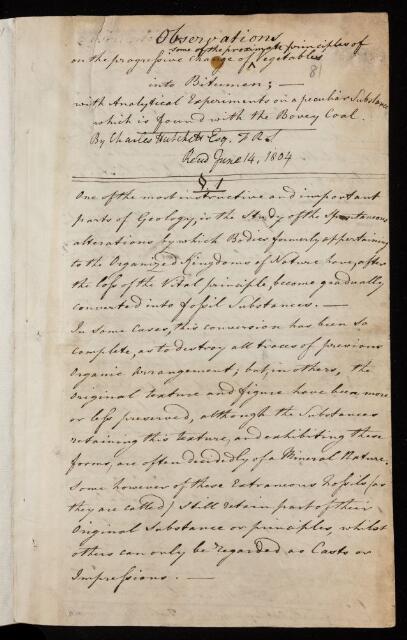 Observations
on the progressive Change of some of the proximate principles of Vegetables
81
into Bitumen; —
with Analytical Experiments on a peculiar Substance
which is found with the Bovey Coal.
By Charles Hatchett Esq. F R S.
Read June 14, 1804
§. 1
One of the most instructive and important
parts of Geology, is the Study of the Spontaneous
alterations by which Bodies formerly appertaining
to the Organized Kingdoms of Nature have, after
the loss of the Vital principle, become gradually
converted into fossil Substances. —
In some Cases, this conversion has been so
complete, as to destroy all traces of previous
Organic arrangement; but, in others, the
Original texture and figure have been more
or less preserved, although the Substances
retaining this texture, and exhibiting these
forms, are often decidedly of a Mineral Nature.
Some however of these Extraneous Fossils (as
they are called) Still retain part of their
Original Substance or principles, whilst
others can only be regarded as Casts or
Impressions. —